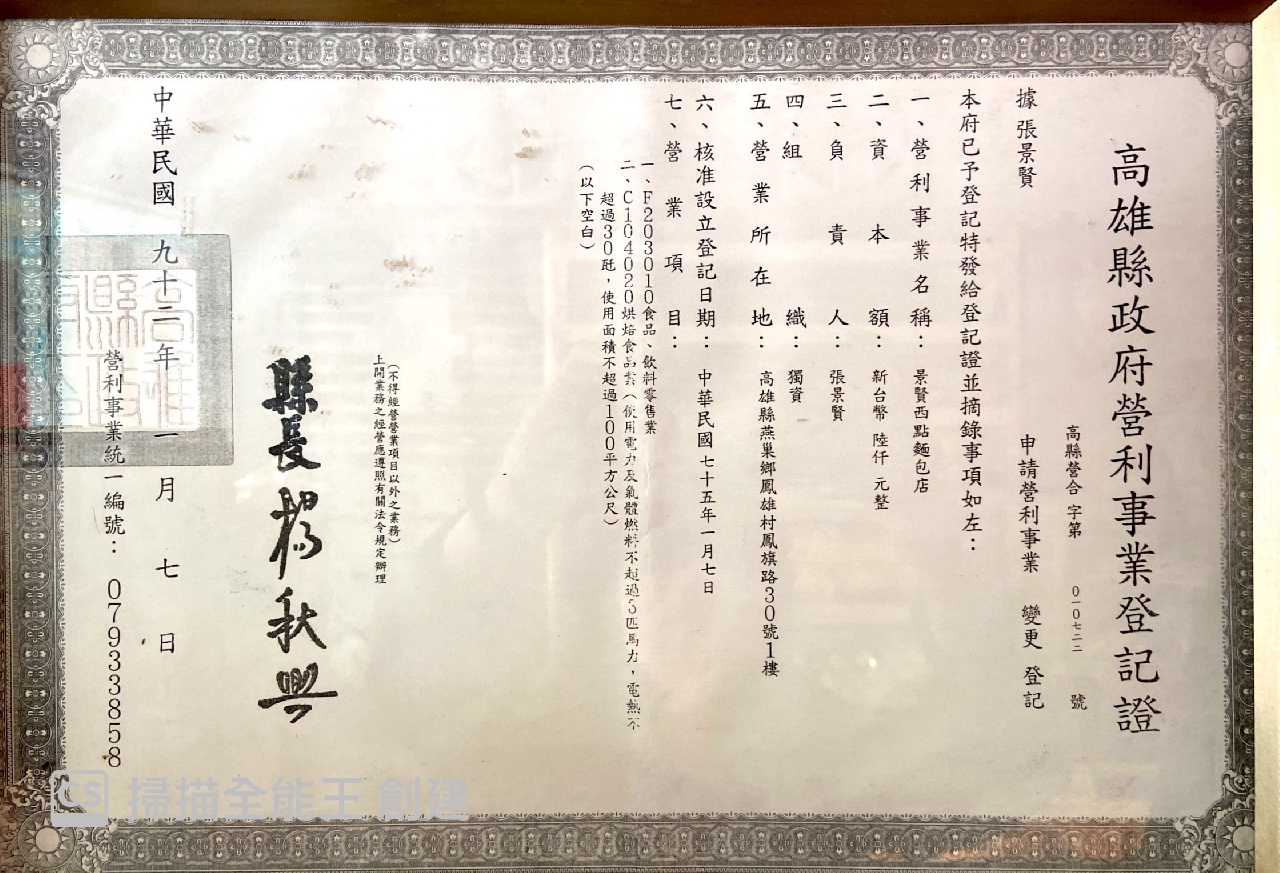 高雄縣政府營利事業登記證
高縣營合 字第 0一0七二二 號
據 張景賢 申請營利事業 變更 登記
本府已予登記特發給登記證並摘錄事項如左：
一、營利事業名稱：景賢西點麵包店
二、資本額：新台幣 陸仟 元整
三、負責人：張景賢
四、組織：獨資
五、營業所在地：高雄縣燕巢鄉鳳雄村鳳旗路30號1樓
六、核准設立登記日期：中華民國七十五年一月七日
七、營業項目：
一、F203010食品、飲料零售業
二、C104020烘焙食品業（使用電力及氣體燃料不超過3匹馬力，電熱不
超過30瓩，使用面積不超過100平方公尺）
（以下空白）
（不得經營營業項目以外之業務）
上開業務之經營應遵照有關法令規定辦理
縣長楊秋興
中華民國 九十二年 一 月 七 日
營利事業統一編號：07933858
CS 掃描全能王 創建